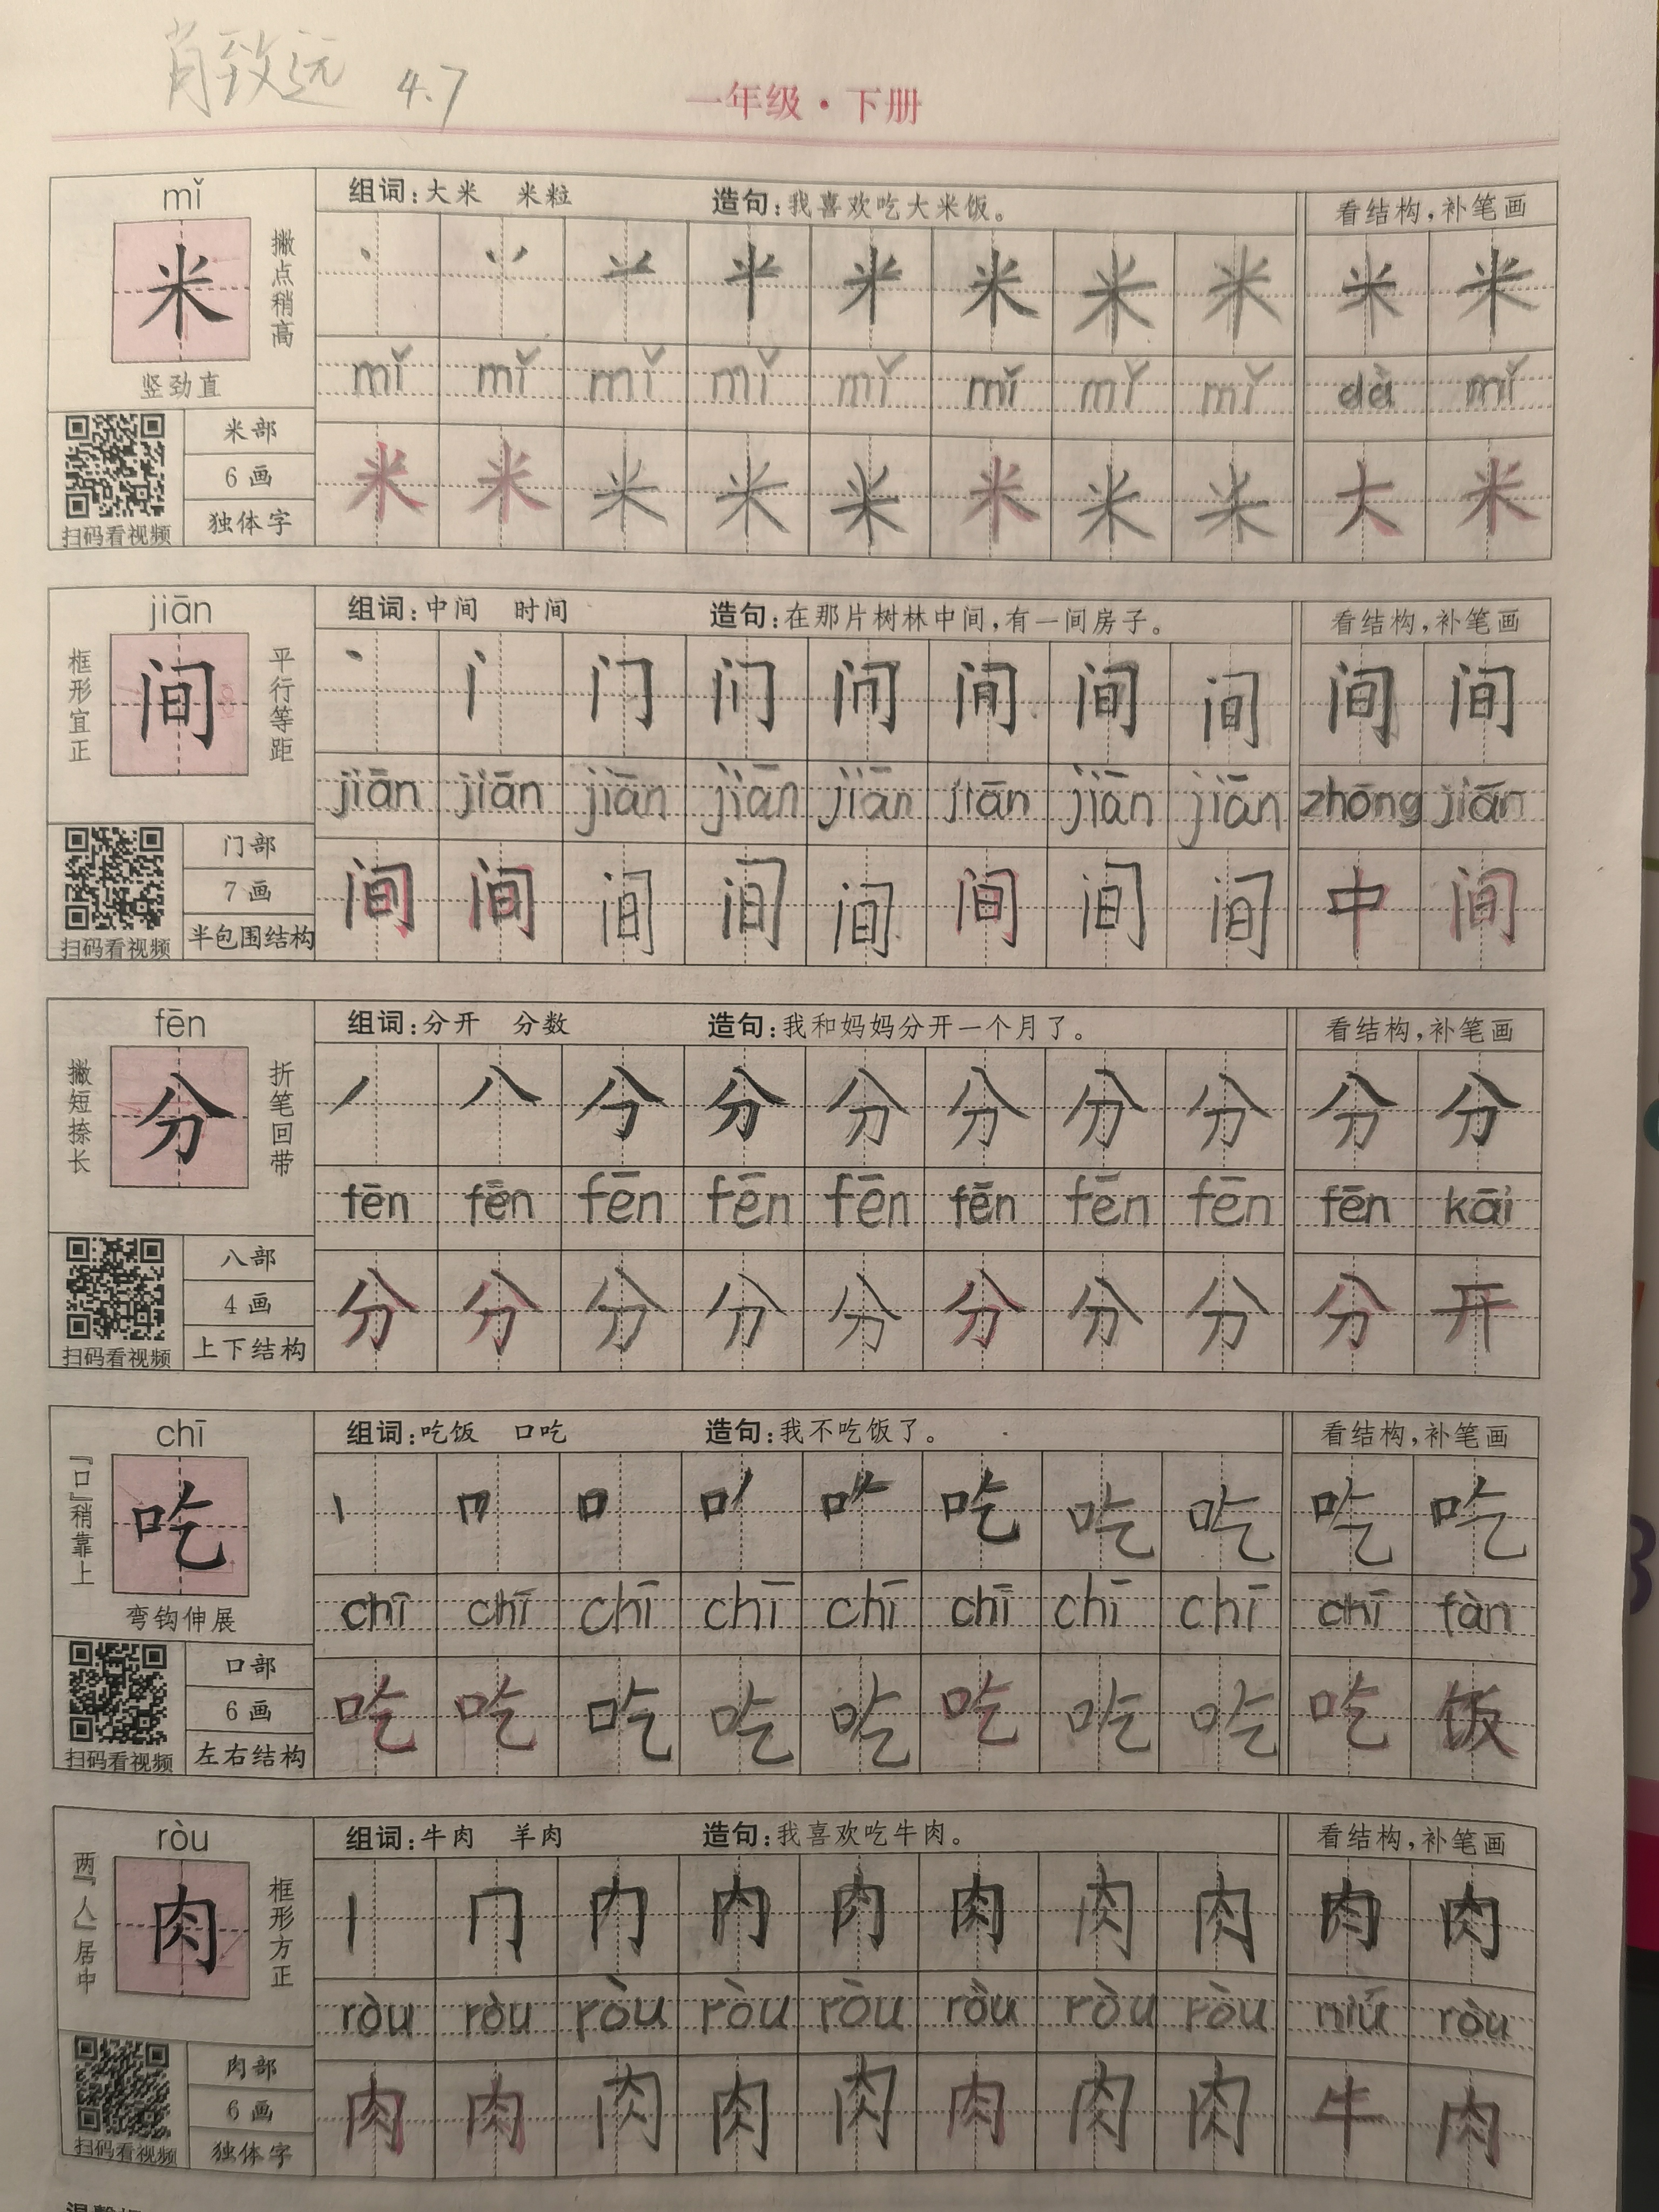 肖致远 4.7
一年级·下册
mǐ
组词:大米 米粒 造句:我喜欢吃大米饭。 看结构,补笔画
米
撇点稍高
竖劲直
丶 丷 米 米 米 米 米 米
mǐ mǐ mǐ mǐ mǐ mǐ mǐ mǐ dà mǐ
米部
6画
独体字
扫码看视频
米 米 米 米 米 米 米 米 大 米
jiān
组词:中间 时间 造句:在那片树林中间,有一间房子。 看结构,补笔画
框形宜正
间
平行等距
丶 门 间 间 间 间
jiān jiān jiān jiān jiān jiān jiān jiān zhōng jiān
门部
7画
半包围结构
扫码看视频
间 间 间 间 间 间 间 间 中 间
fēn
组词:分开 分数 造句:我和妈妈分开一个月了。 看结构,补笔画
撇短捺长
分
折笔回带
丿 八 分 分 分 分 分 分 分
fēn fēn fēn fēn fēn fēn fēn fēn fēn kāi
八部
4画
上下结构
扫码看视频
分 分 分 分 分 分 分 分 分 开
chī
组词:吃饭 口吃 造句:我不吃饭了。 看结构,补笔画
『口』稍靠上
吃
弯钩伸展
丨 口 吃 吃 吃 吃 吃
chī chī chī chī chī chī chī chī chī fàn
口部
6画
左右结构
扫码看视频
吃 吃 吃 吃 吃 吃 吃 吃 吃 饭
ròu
组词:牛肉 羊肉 造句:我喜欢吃牛肉。 看结构,补笔画
两『人』居中
肉
框形方正
丨 冂 内 内 肉 肉 肉 肉 肉 肉
ròu ròu ròu ròu ròu ròu ròu ròu niú ròu
肉部
6画
独体字
扫码看视频
肉 肉 肉 肉 肉 肉 肉 肉 牛 肉